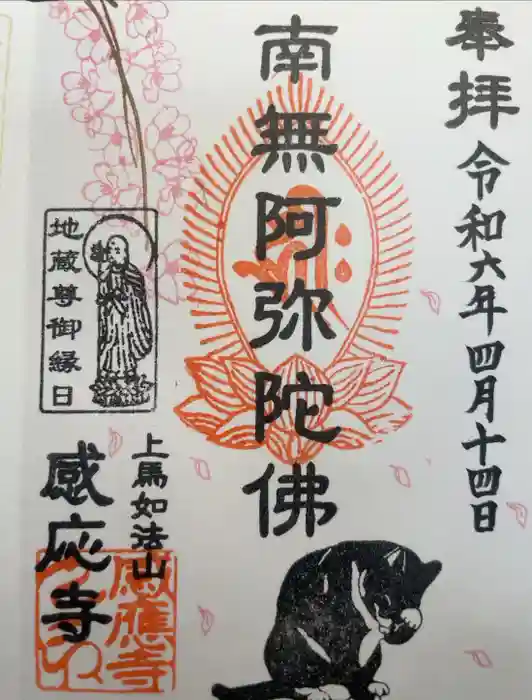 奉拝
令和六年四月十四日
南無阿弥陀佛
地蔵尊御縁日
上馬如法山
感応寺
感應寺